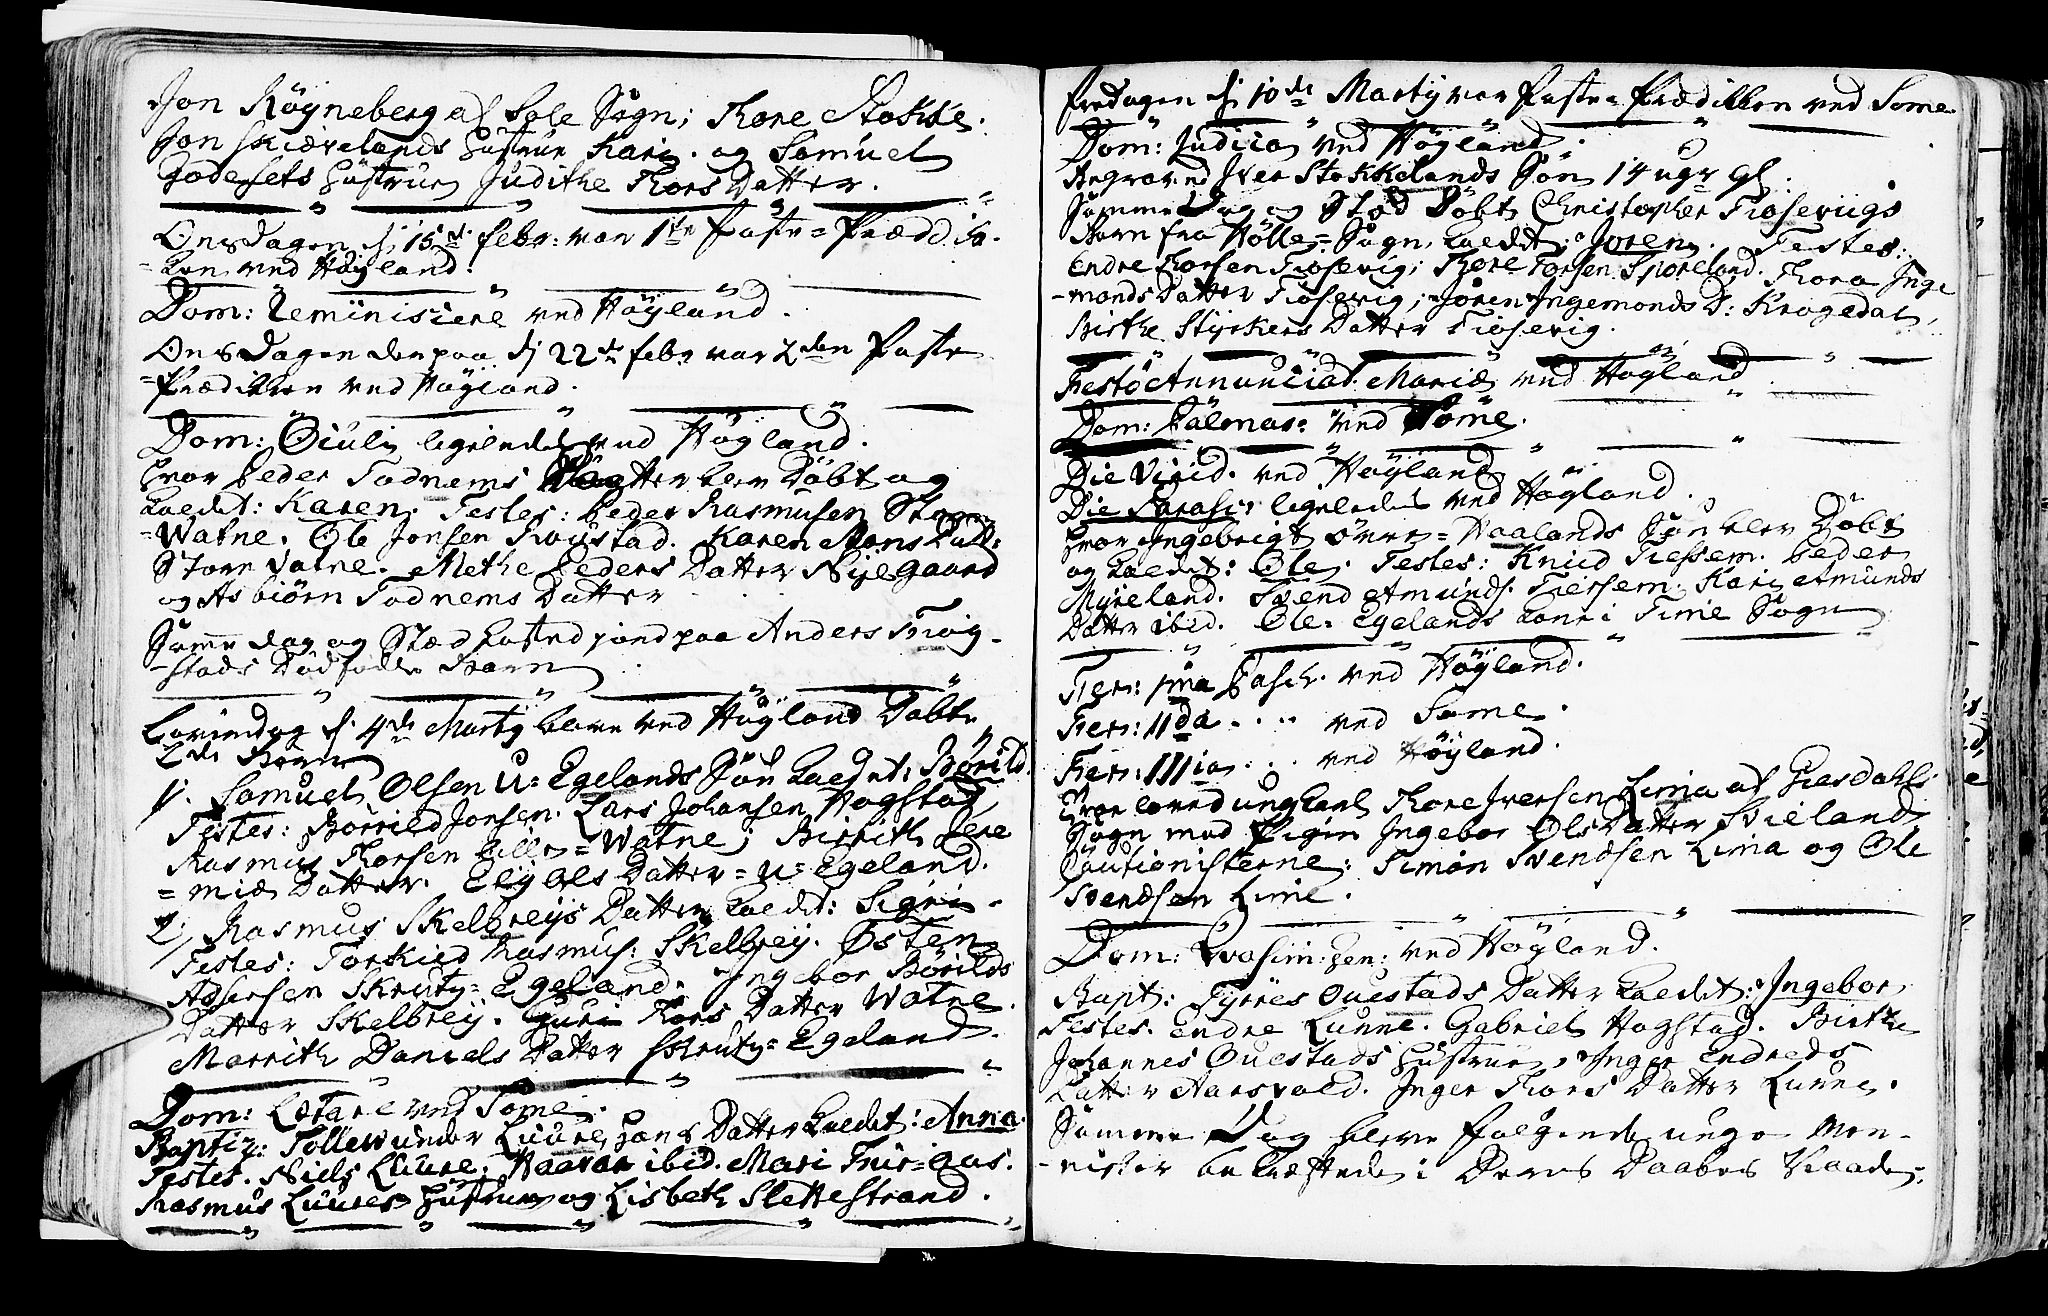 Jon Röyneberg af Sole Sogn; Thore Stokke.
Jon Skiævelands Hustrue Kari. og Samuel
Godesets Hustrue Judithe Thors Datter.
Onsdagen d; 15de Febr: var 1ste Faste=Prædika-
=ken ved Höyland.
Dom: Reminiscere ved Höyland.
Onsdagen derpaa d; 22de Febr var 2den Faste
=Prædikken ved Höyland.
Dom: Oculi ligeledes ved Höyland.
hvor Peder Todnems Datter blev Döbt og
kaldt: Karen. Testes: Peder Rasmusen Store
=Watne. Ole Jonsen Roustad. Karen Mons Datt:
Store Vatne. Methe Peders Datter Nyegaard
og Asbiörn Todnems Datter
Samme dag og Stæd kasted jord paa Anders Trög-
=stads Dödfödde Barn
Löverdag d; 4de Marty bleve ved Höyland Döbte
2de Börn
1. Samuel Olsen U: Egelands Sön kaldet: Börild.
Testes: Börrild Jonsen. Lars Johansen Hogstad
Rasmus Thorsen Lille=Watne; Birrith Jere
=miæ Datter. Elg Ols Datter=U=Egeland.
2, Rasmus Skelbreys Datter kaldt: Sigri.
Testes: Torkild Rasmus: Skelbrey. Östen
Adsersen Skruty=Egeland. Ingebor Börilds
Datter Skelbrey. Guri Thors Datter Watne.
Marrith Daniels Datter Skruty=Egeland.
Dom: Lætare ved Some.
Baptiz: Tollew under Luure hans Datter kaldet: Anna.
Testes. Niels Luure. Haavar ibid. Mari Fuir=aas.
Rasmus Luures Hustrue og Lisbeth Slettestrand.
Fredagen d; 10de Marty var Faste=Prædikken ved Some
Dom: Judica ved Höyland.
Begraved Iver Stokkelands Sön 14 uger gl:
Samme Dag og Stæd Döbt Christopher Tiösevigs
Barn fra Hölle=Sogn, kaldt: Joren. Testes:
Endre Thorsen Tiösevig; Thore Torsen Sporeland. Thora Inge
=monds Datter Tiösevig; Jören Ingemonds D: Kragedal,
Birthe Styrkers Datter Tiösevig.
Festo Annunciat: Mariæ ved Höyland
Dom: Palmar: ved Some.
Die Virid. ved Höyland
Die Parasc: ligeledes ved Höyland.
hvor Ingebrigt övre=Haalands Sön blev Döbt
og kaldt: Ole. Testes: Knud Tiessem. Peder
Myreland. Svend Amunds: Tiersem. Kari Amunds
Datter ibid. Ole Egelands kone i Time Sogn
Fer: 1ma Pasch. ved Höyland.
Fer: IIda . . . ved Some.
Fer: IIIia . . . ved Höyland.
hvor ungkarl Thore Iversen Lima af Giesdahls
Sogn med Pigen Ingebor Ols Datter Svieland
Cautionisterne: Simon Svendsen Lima og Ole
Svendsen Lime.
Dom: Qvasim: gen: ved Höyland.
Bapt: Tyrres Ouestads Datter kaldet: Ingebor,
Testes. Endre Lunne. Gabriel Hogstad. Birthe
Johannes Ouestads Hustrue, Inger Endreds
Datter Aarsvold. Inger Thors Datter Lunne.
Samme Dag bleve fölgende unge Men-
=nisker bekræftede i Deres Daabes Naade: